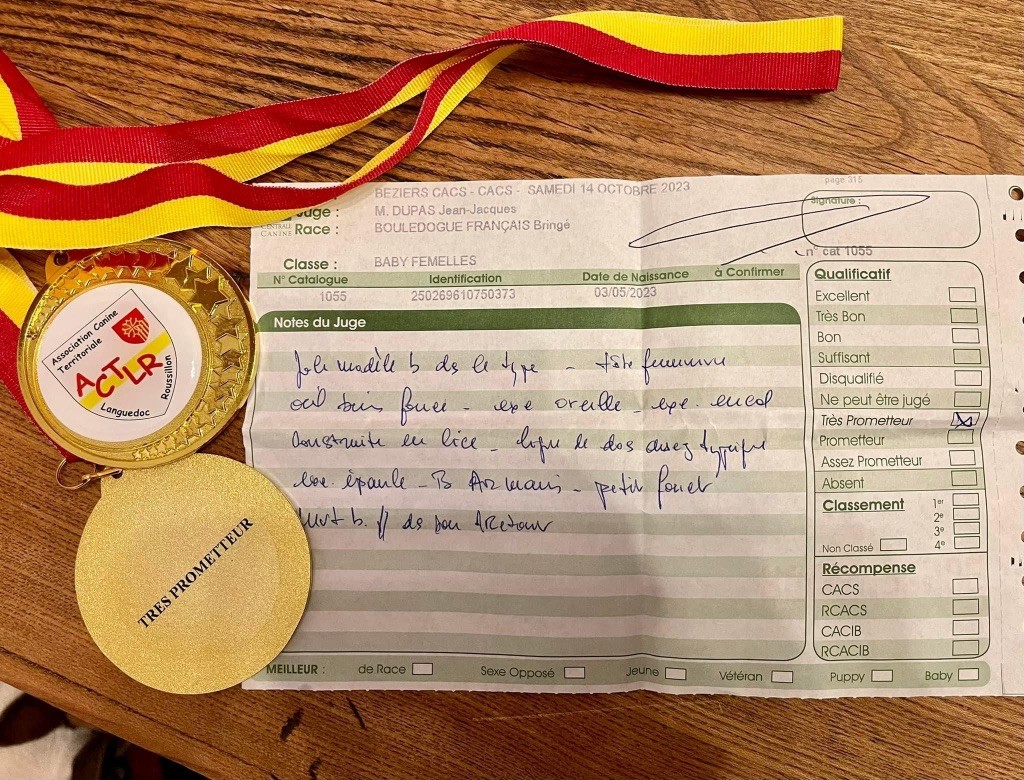 page 315
BEZIERS CACS - CACS - SAMEDI 14 OCTOBRE 2023
Juge : M. DUPAS Jean-Jacques
CENTRALE
CANINE
Race : BOULEDOGUE FRANÇAIS Bringé
Signature :
n° cat 1055
Classe : BABY FEMELLES
N° Catalogue Identification Date de Naissance à Confirmer
1055 250269610750373 03/05/2023
Notes du Juge
Joli modèle b ds le type - tête féminine
œil bien foncé - exc oreille - exc. encol
construite en lice - ligne de dos assez typique
exc épaule - B - petit fouet
b. // ds son
Qualificatif
Excellent
Très Bon
Bon
Suffisant
Disqualifié
Ne peut être jugé
Très Prometteur
Prometteur
Assez Prometteur
Absent
Classement 1er
2e
3e
Non Classé 4e
Récompense
CACS
RCACS
CACIB
RCACIB
MEILLEUR : de Race Sexe Opposé Jeune Vétéran Puppy Baby
Association Canine
Territoriale
ACTLR
Languedoc
Roussillon
TRES PROMETTEUR